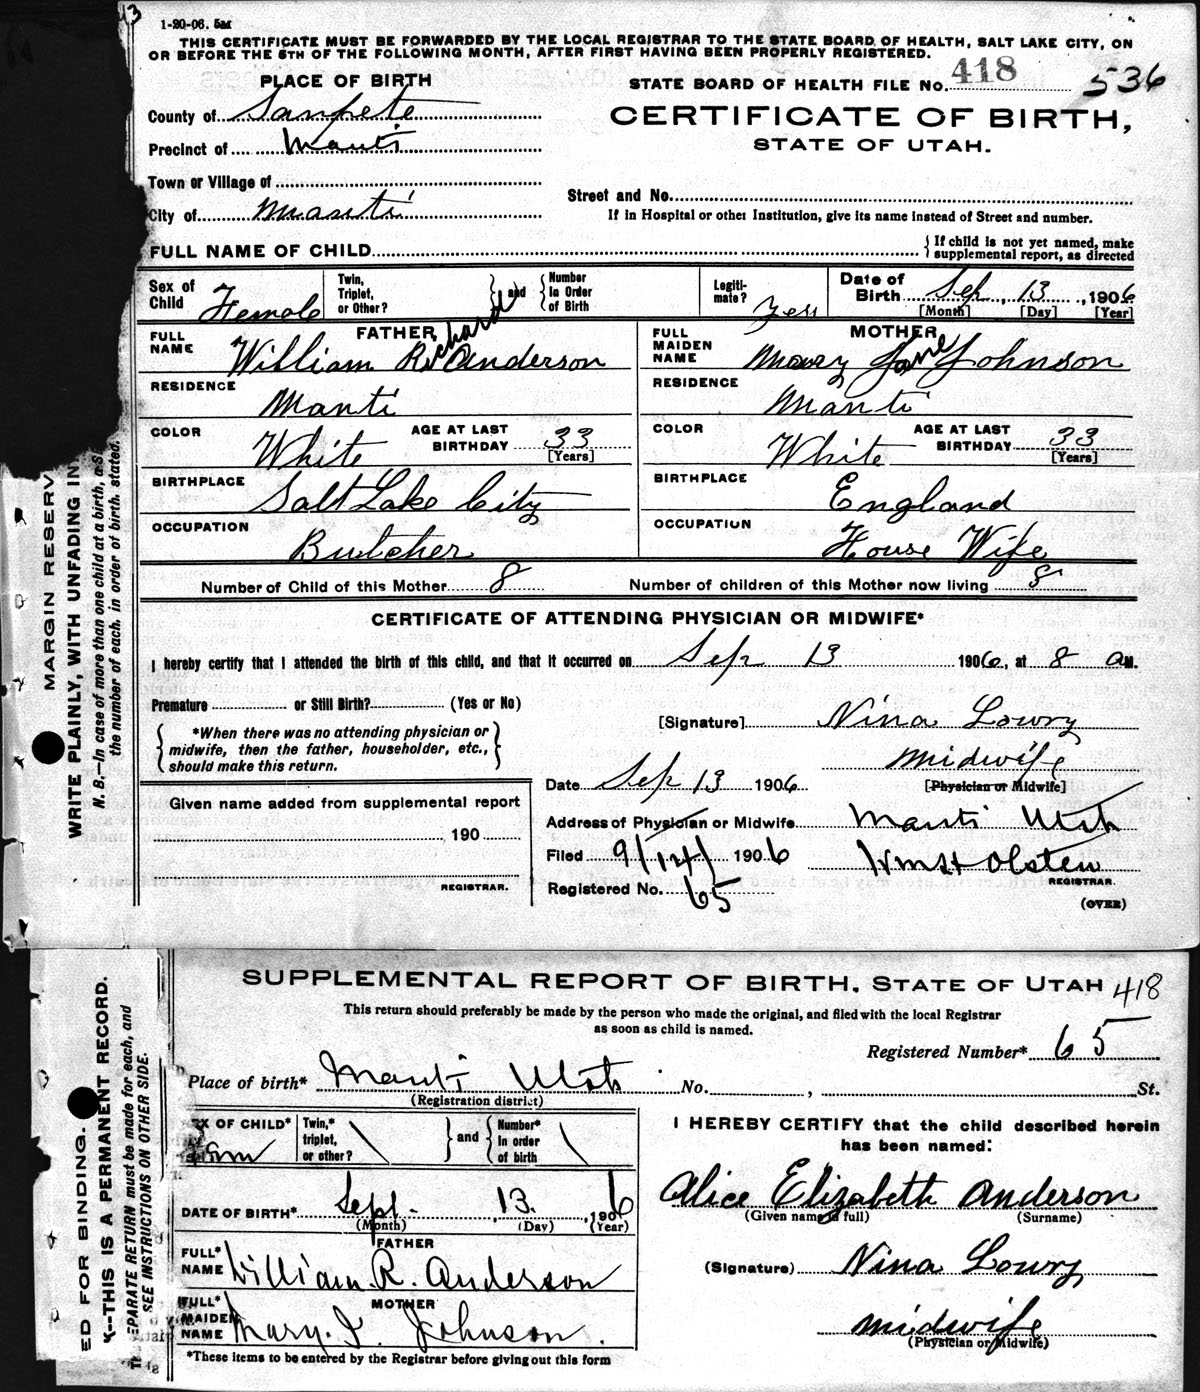 1-20-06. 5M
THIS CERTIFICATE MUST BE FORWARDED BY THE LOCAL REGISTRAR TO THE STATE BOARD OF HEALTH, SALT LAKE CITY, ON
OR BEFORE THE 5TH OF THE FOLLOWING MONTH, AFTER FIRST HAVING BEEN PROPERLY REGISTERED.
PLACE OF BIRTH
STATE BOARD OF HEALTH FILE No. 418 536
County of Sanpete
CERTIFICATE OF BIRTH,
Precinct of Manti
STATE OF UTAH.
Town or Village of
Street and No.
City of Manti
If in Hospital or other Institution, give its name instead of Street and number.
FULL NAME OF CHILD
{ If child is not yet named, make
supplemental report, as directed
Sex of Child Female
Twin, Triplet, or Other? } and { Number In Order of Birth
Legitimate? Yess
Date of Birth Sep 13, 1906
[Month] [Day] [Year]
FATHER
FULL NAME William Richard Anderson
RESIDENCE Manti
COLOR White AGE AT LAST BIRTHDAY 33 [Years]
BIRTHPLACE Salt Lake City
OCCUPATION Butcher
MOTHER
FULL MAIDEN NAME Mary Jane Johnson
RESIDENCE Manti
COLOR White AGE AT LAST BIRTHDAY 33 [Years]
BIRTHPLACE England
OCCUPATION House Wife
Number of Child of this Mother 8 Number of children of this Mother now living 8
CERTIFICATE OF ATTENDING PHYSICIAN OR MIDWIFE*
I hereby certify that I attended the birth of this child, and that it occurred on Sep 13 1906, at 8 a.m.
Premature or Still Birth? (Yes or No)
{ *When there was no attending physician or
midwife, then the father, householder, etc.,
should make this return. }
[Signature] Nina Lowry
midwife
[Physician or Midwife]
Date Sep 13 1906
Given name added from supplemental report
190
REGISTRAR.
Address of Physician or Midwife Manti Utah
Filed 9/14/ 1906 Wm H Olsten
REGISTRAR.
Registered No. 65
(OVER)
MARGIN RESERV
WRITE PLAINLY, WITH UNFADING IN
N. B.—In case of more than one child at a birth, a S
the number of each, in order of birth, stated.
SUPPLEMENTAL REPORT OF BIRTH, STATE OF UTAH 418
This return should preferably be made by the person who made the original, and filed with the local Registrar
as soon as child is named.
Registered Number* 65
Place of birth* Manti Utah No. , St.
(Registration district)
EX OF CHILD* Fem
Twin,* triplet, or other? \ } and { Number* In order of birth \
DATE OF BIRTH* Sept. 13, 1906
(Month) (Day) (Year)
FATHER
FULL* NAME William R. Anderson
MOTHER
FULL* MAIDEN NAME Mary. J. Johnson.
*These items to be entered by the Registrar before giving out this form
I HEREBY CERTIFY that the child described herein
has been named:
Alice Elizabeth Anderson
(Given name in full) (Surname)
(Signature) Nina Lowry
midwife
(Physician or Midwife)
ED FOR BINDING.
K--THIS IS A PERMANENT RECORD.
EPARATE RETURN must be made for each, and
SEE INSTRUCTIONS ON OTHER SIDE.